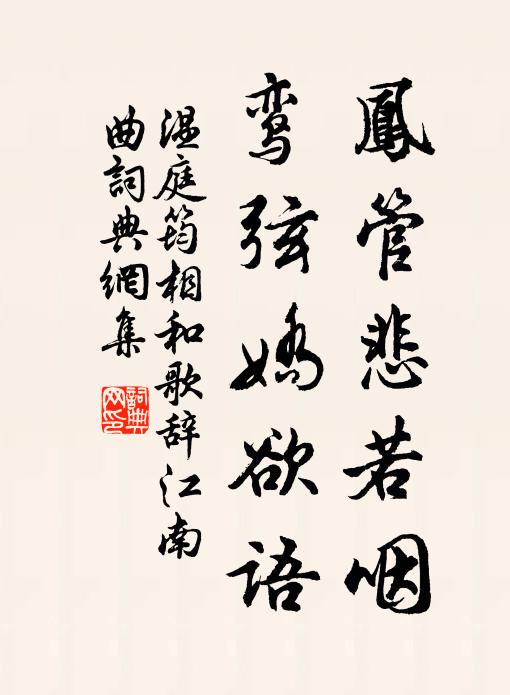 鳳管悲若咽
鸾弦嬌欲語
温庭筠相和歌辞江南
曲詞典網集
詞典网印